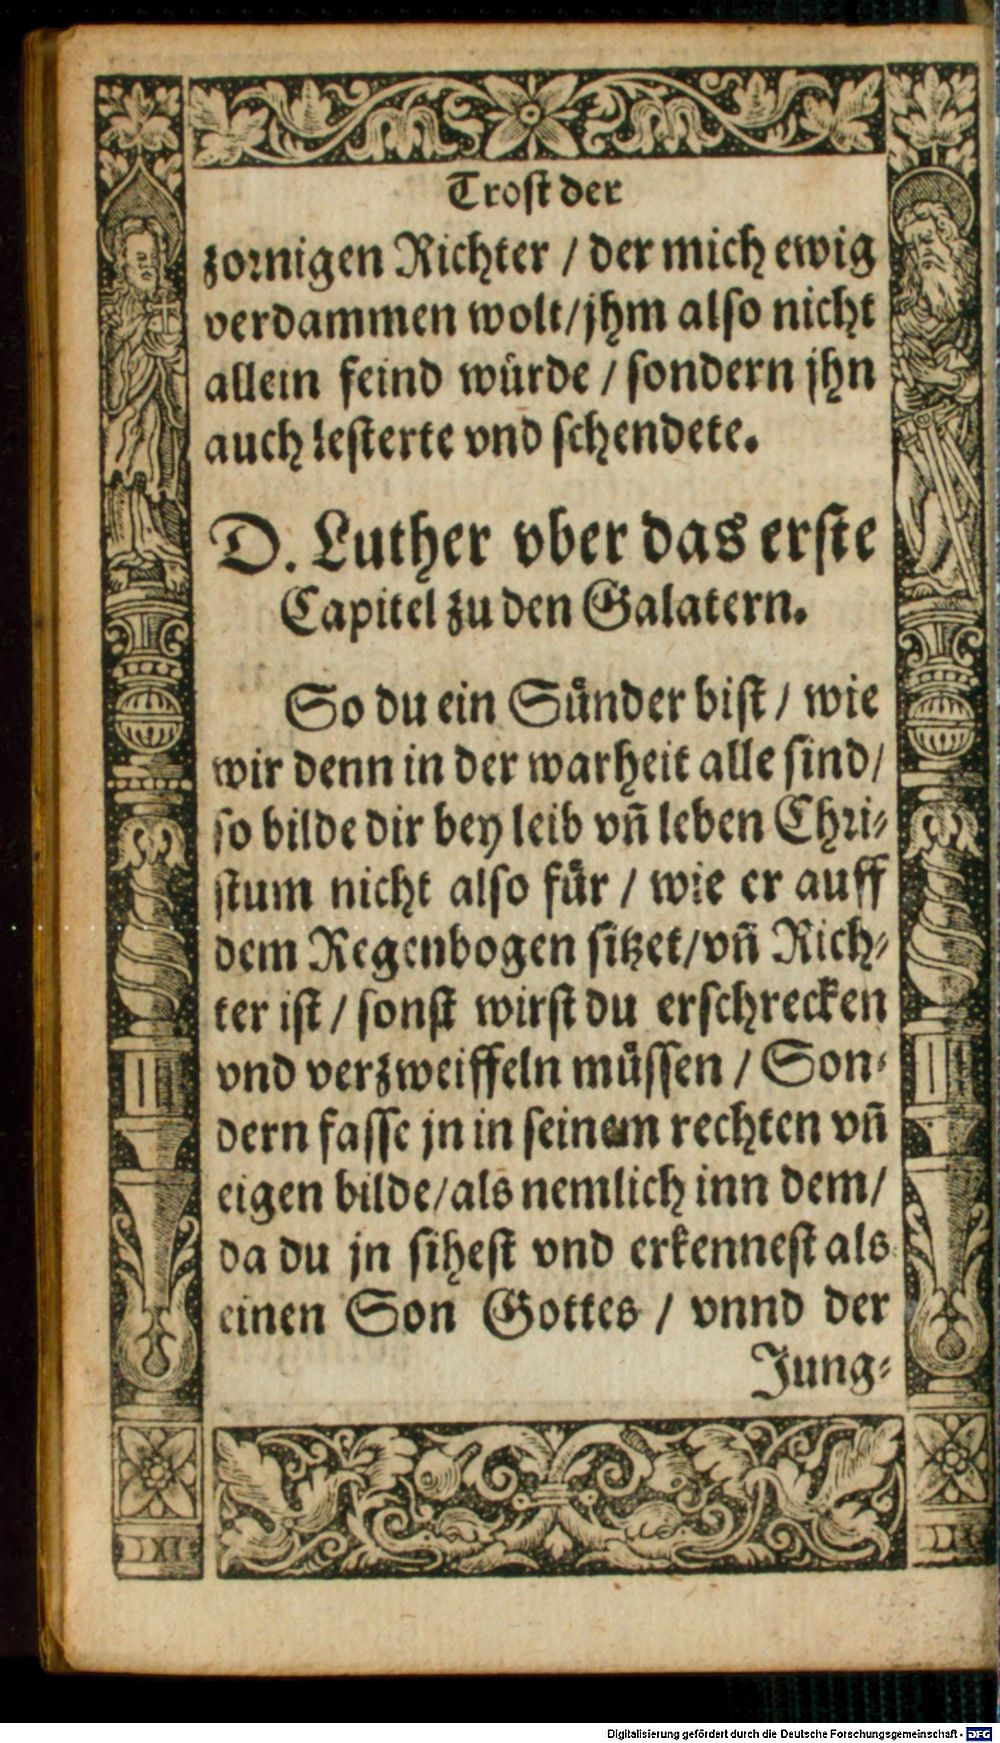 Trost der
zornigen Richter / der mich ewig
verdammen wolt/jhm also nicht
allein feind wuͤrde / sondern jhn
auch lesterte vnd schendete.
D. Luther vber das erste
Capitel zu den Galatern.
So du ein Suͤnder bist / wie
wir denn in der warheit alle sind/
so bilde dir bey leib vn̄ leben Chri⸗
stum nicht also fuͤr / wie er auff
dem Regenbogen sitzet/vn̄ Rich⸗
ter ist / sonst wirst du erschrecken
vnd verzweiffeln muͤssen / Son⸗
dern fasse jn in seinem rechten vn̄
eigen bilde/als nemlich inn dem/
da du jn sihest vnd erkennest als
einen Son Gottes / vnnd der
Jung⸗
Digitalisierung gefördert durch die Deutsche Forschungsgemeinschaft - DFG